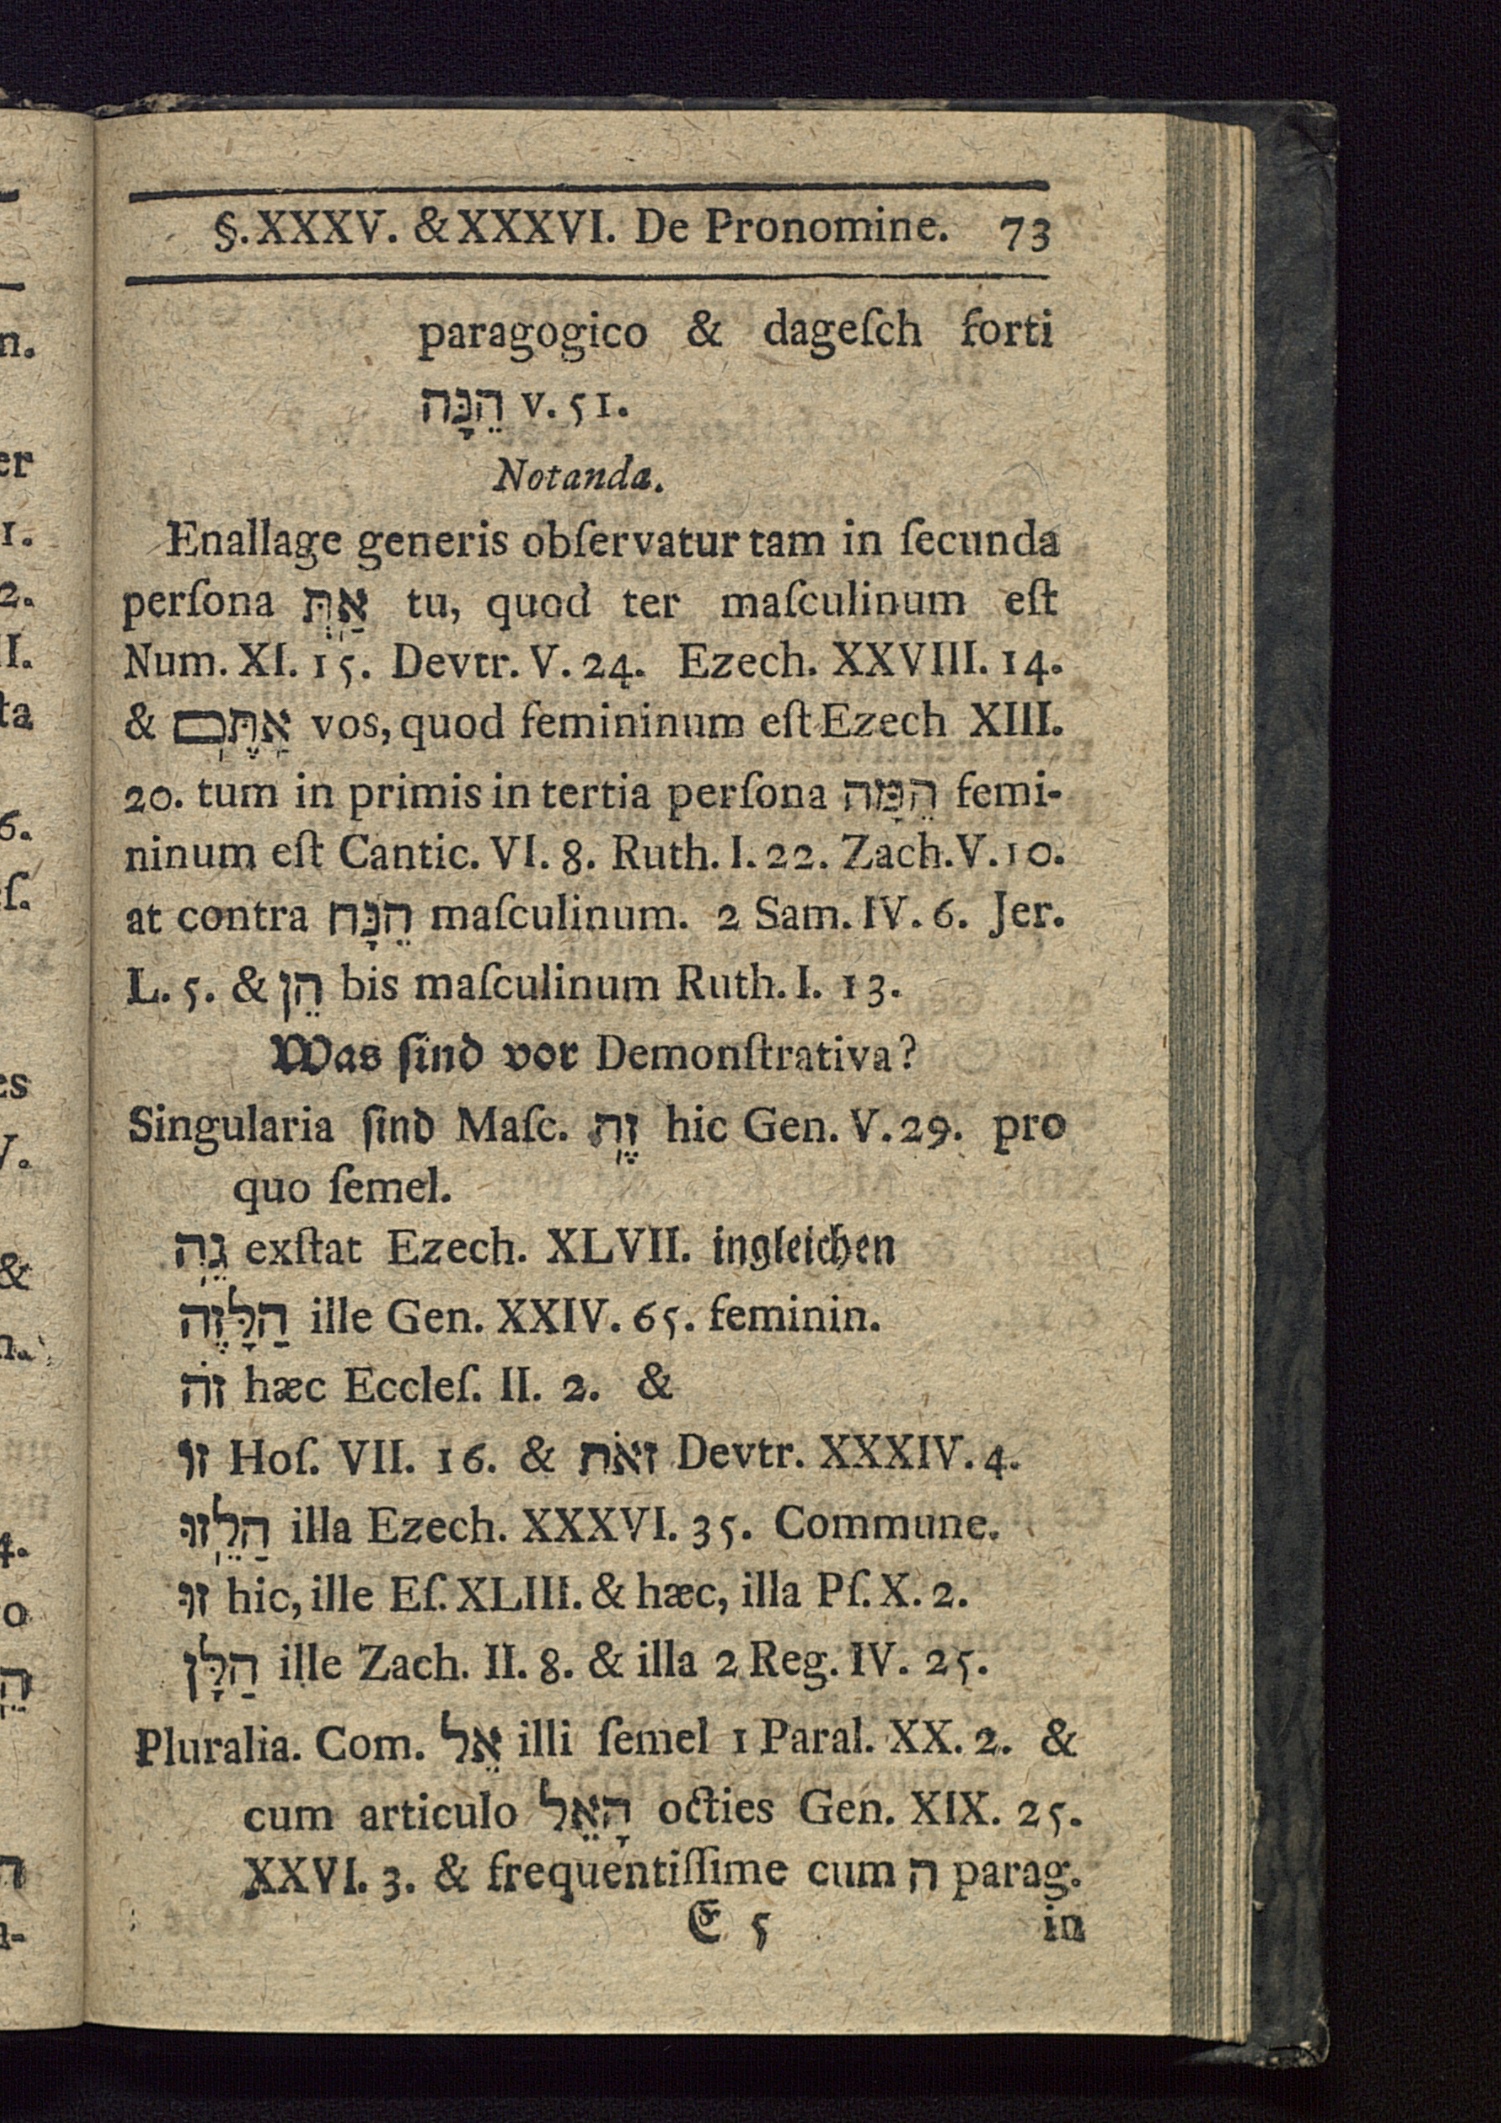 §.XXXV. & XXXVI. De Pronomine. 73
paragogico & dageſch forti
הֵנָּה v. 51.
Notanda.
Enallage generis obſervatur tam in ſecunda
perſona אַתְּ tu, quod ter maſculinum eſt
Num. XI. 15. Devtr. V. 24. Ezech. XXVIII. 14.
& אַתֶּם vos, quod femininum eſt Ezech XIII.
20. tum in primis in tertia perſona הֵמָּה femi-
ninum eſt Cantic. VI. 8. Ruth. I. 22. Zach. V. 10.
at contra הֵנָּח maſculinum. 2 Sam. IV. 6. Jer.
L. 5. & הֵן bis maſculinum Ruth. I. 13.
Was ſind vor Demonſtrativa?
Singularia ſind Maſc. זֶה hic Gen. V. 29. pro
quo ſemel.
גֵּה exſtat Ezech. XLVII. ingleichen
הַלָּזֶה ille Gen. XXIV. 65. feminin.
זֹה hæc Eccleſ. II. 2. &
זוֹ Hoſ. VII. 16. & זֹאת Devtr. XXXIV. 4.
הַלֵּזוּ illa Ezech. XXXVI. 35. Commune.
זוּ hic, ille Eſ. XLIII. & hæc, illa Pſ. X. 2.
הַלָּן ille Zach. II. 8. & illa 2 Reg. IV. 25.
Pluralia. Com. אֵל illi ſemel 1 Paral. XX. 2. &
cum articulo הָאֵל octies Gen. XIX. 25.
XXVI. 3. & frequentiſſime cum ה parag.
E 5 in